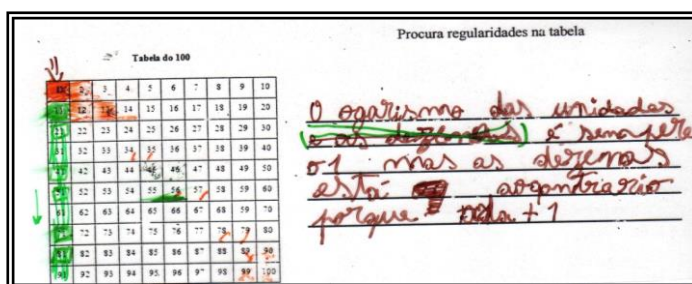 Procura regularidades na tabela
Tabela do 100
1 2 3 4 5 6 7 8 9 10
11 12 13 14 15 16 17 18 19 20
21 22 23 24 25 26 27 28 29 30
31 32 33 34 35 36 37 38 39 40
41 42 43 44 45 46 47 48 49 50
51 52 53 54 55 56 57 58 59 60
61 62 63 64 65 66 67 68 69 70
71 72 73 74 75 76 77 78 79 80
81 82 83 84 85 86 87 88 89 90
91 92 93 94 95 96 97 98 99 100
O ogarismo das unidades
e as dezenas) é sempre
o 1 mas as dezenas
está aocontrario
porque + 1